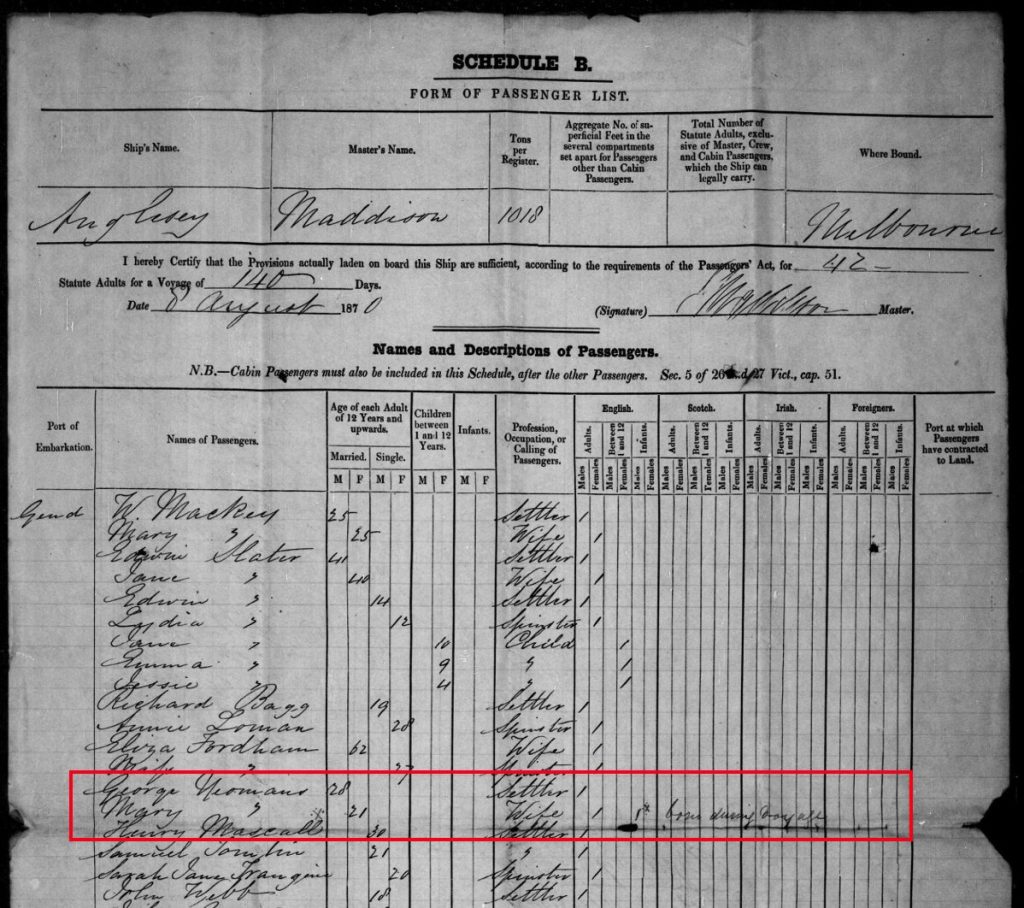 SCHEDULE B.
FORM OF PASSENGER LIST.
Ship's Name. Master's Name. Tons per Register. Aggregate No. of superficial Feet in the several compartments set apart for Passengers other than Cabin Passengers. Total Number of Statute Adults, exclusive of Master, Crew, and Cabin Passengers, which the Ship can legally carry. Where Bound.
Anglesey Maddison 1018 Melbourne
I hereby Certify that the Provisions actually laden on board this Ship are sufficient, according to the requirements of the Passengers' Act, for 42
Statute Adults for a Voyage of 140 Days.
Date 8 August 1870 (Signature) Master.
Names and Descriptions of Passengers.
N.B.—Cabin Passengers must also be included in this Schedule, after the other Passengers. Sec. 5 of 26 and 27 Vict., cap. 51.
Port of Embarkation. Names of Passengers. Age of each Adult of 12 Years and upwards. Children between 1 and 12 Years. Infants. Profession, Occupation, or Calling of Passengers. English. Scotch. Irish. Foreigners. Port at which Passengers have contracted to Land.
Married. Single.
Adults. Between 1 and 12 Infants. Adults. Between 1 and 12 Infants. Adults. Between 1 and 12 Infants. Adults. Between 1 and 12 Infants.
M F M F M F M F Males Females Males Females Males Females Males Females Males Females Males Females Males Females Males Females Males Females Males Females Males Females Males Females
W. Mackey 25 Settler 1
Mary " 25 Wife 1
Edwin Slater 41 Settler 1
Jane " 40 Wife 1
Edwin " 14 Settler 1
Lydia " 12 Spinster 1
Jane " 10 Child 1
Emma " 9 " 1
Jessie " 4 " 1
Richard Bagg 19 Settler 1
Annie Loman 28 Spinster 1
Eliza Fordham 62 Wife 1
" 27 Spinster 1
George Yeomans 28 Settler 1
Mary " 21 Wife 1 1* born during voyage
Henry Mascall 30 Settler 1
Samuel Tomlin 21 " 1
Sarah Jane 20 Spinster 1
John Webb 18 Settler 1